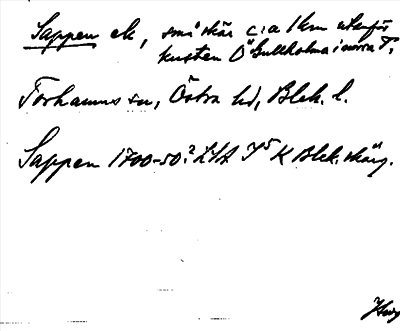 Sappen sk, små skär c:a 1 km utanför
kusten Ö Gullholma i norra T,
Torhamns sn, Östra hd, Blek. l.
Sappen 1700-50? LSA I5 K Blek. skärg.